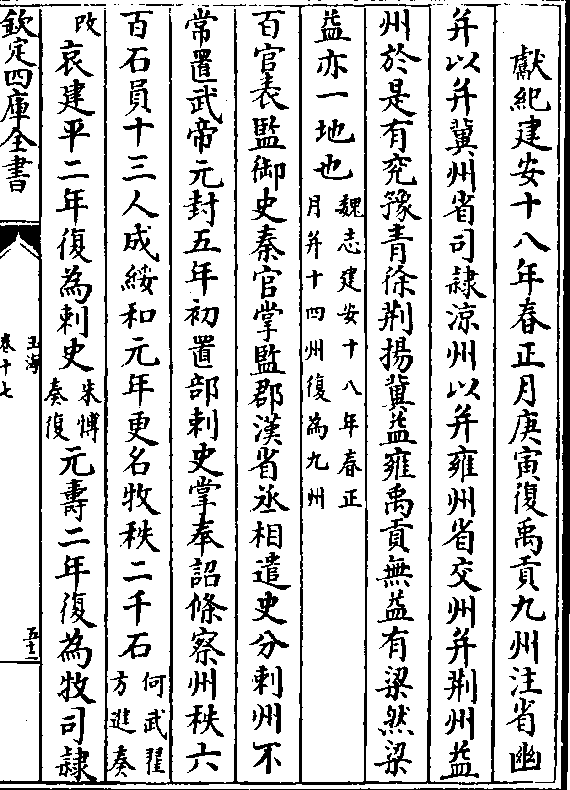 獻紀建安十八年春正月庚寅復禹貢九州注省幽
并以并冀州省司隷涼州以并雍州省交州并荆州益
州於是有兖豫青徐荆揚冀益雍禹貢無益有梁然梁
益亦一地也魏志建安十八年春正
月并十四州復為九州
百官表監御史秦官掌監郡漢省丞相遣史分刺州不
常置武帝元封五年初置部刺史掌奉詔條察州秩六
百石員十三人成綏和元年更名牧秩二千石何武翟
方進奏
改哀建平二年復為刺史朱博
奏復元壽二年復為牧司隷
欽定四庫全書
玉海
卷十七
五十二